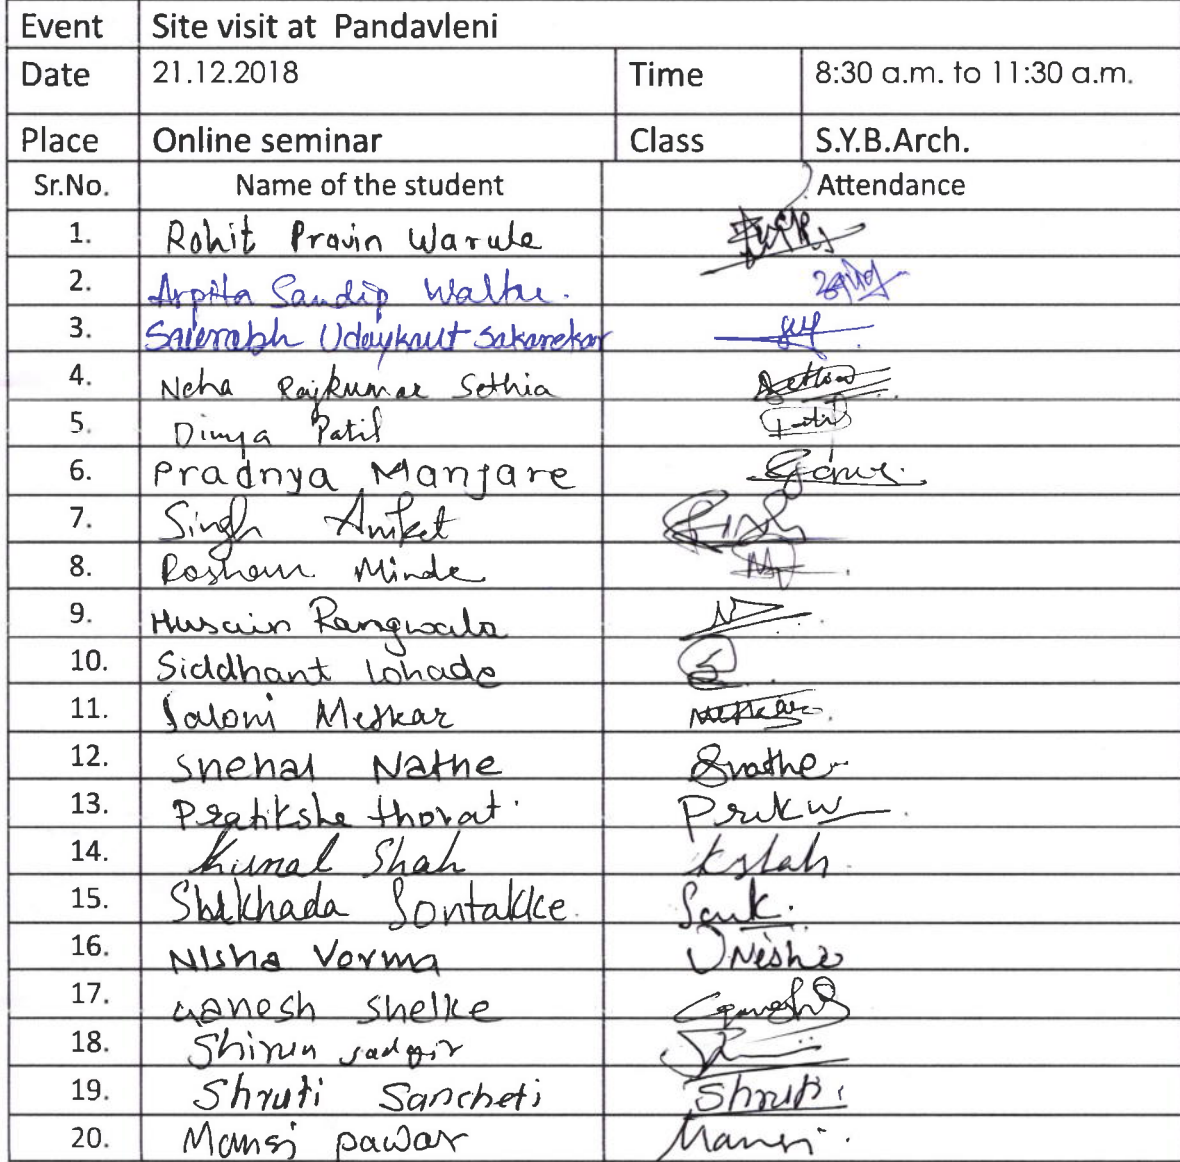 Event Site visit at Pandavleni
Date 21.12.2018 Time 8:30 a.m. to 11:30 a.m.
Place Online seminar Class S.Y.B.Arch.
Sr.No. Name of the student Attendance
1. Rohit Pravin Warule
2. Arpita Sandip
3. Saurabh Udaykant Sakarekar
4. Neha Rajkumar Sethia Sethia
5. Patil Patil
6. Pradnya Manjare
7. Singh Aniket
8. Minde
9. Husain Rangwala
10. Siddhant Lohade
11. Saloni Metkar Metkar
12. Snehal Nathe Snathe
13. Pratiksha thorat.
14. Kunal Shah KShah.
15. Sontakke.
16. Nisha Verma Nisha
17. Ganesh Shelke Ganesh
18. Sadgir
19. Shruti Sancheti Shruti.
20. Mansi pawar Mansi.